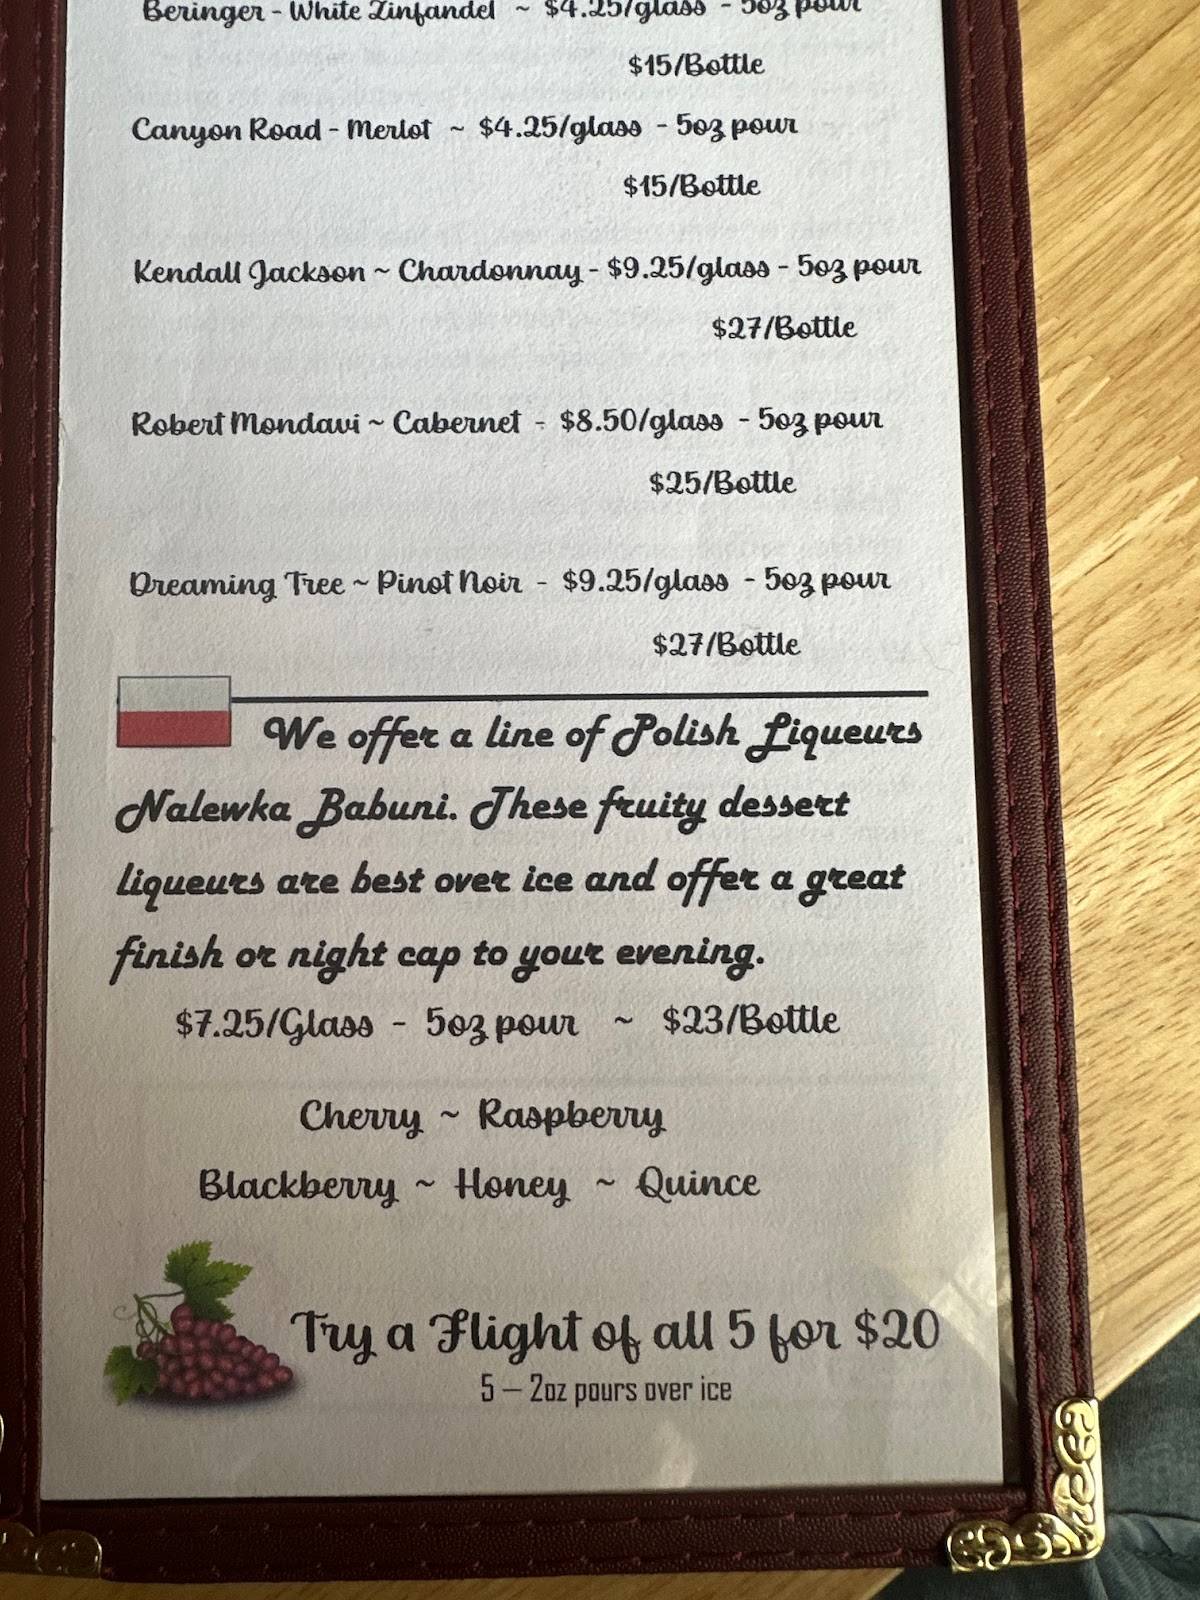 Beringer - White Zinfandel ~ $4.25/glass - 5oz pour
$15/Bottle
Canyon Road - Merlot ~ $4.25/glass - 5oz pour
$15/Bottle
Kendall Jackson ~ Chardonnay - $9.25/glass - 5oz pour
$27/Bottle
Robert Mondavi ~ Cabernet - $8.50/glass - 5oz pour
$25/Bottle
Dreaming Tree ~ Pinot Noir - $9.25/glass - 5oz pour
$27/Bottle
We offer a line of Polish Liqueurs
Nalewka Babuni. These fruity dessert
liqueurs are best over ice and offer a great
finish or night cap to your evening.
$7.25/Glass - 5oz pour ~ $23/Bottle
Cherry ~ Raspberry
Blackberry ~ Honey ~ Quince
Try a Flight of all 5 for $20
5 – 2oz pours over ice